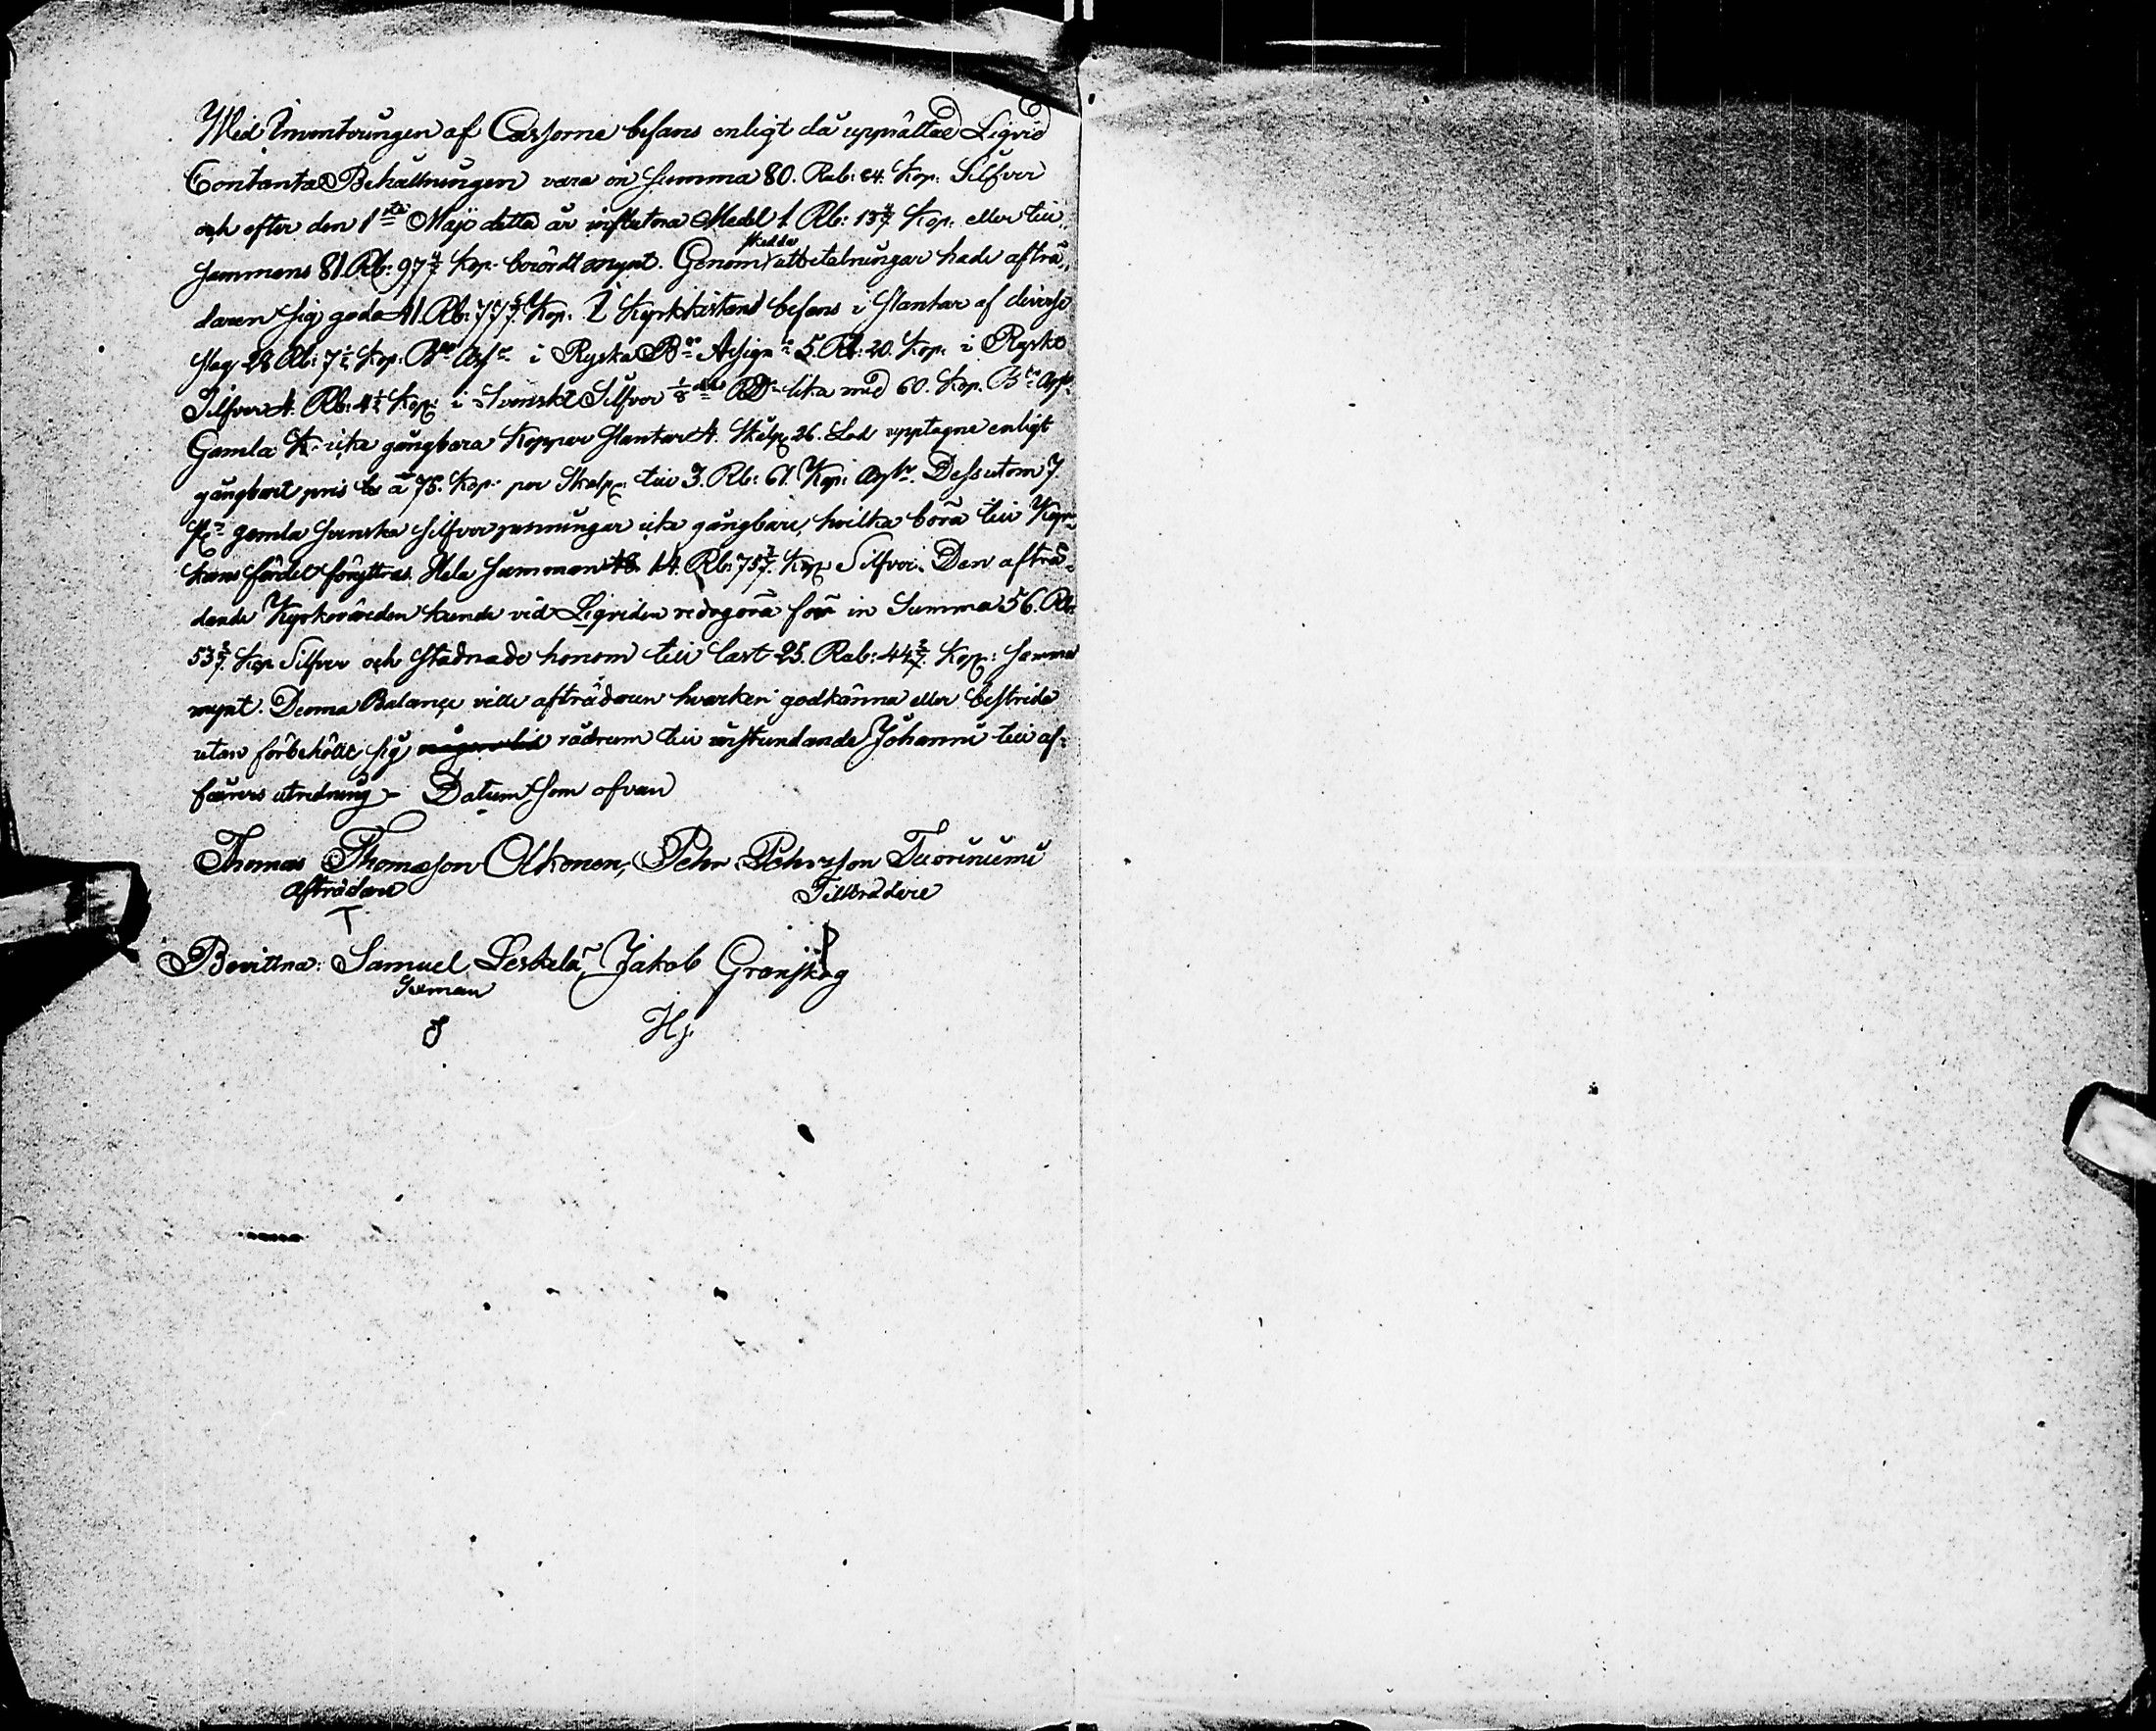 Wid Inventeringen af Cassorna befans enligt då upprättad Liqvid
Contanta Behållningen vara in Summa 80. Rub: 84. Kop: Silfver
och efter den 1sta Maji detta år influtna Medel 1 Rb: 13 4/7 Kop: eller till-
sammans 81. Rb: 97 4/7 Kop: berördt mynt. Genom skedda utbetalningar hade afträ-
daren sig godo 41. Rb: 77 5/7 Kop: I Kyrkkistan befans i slantar af diverse
slag 28 Rb: 7 1/2 Kop: Bco Assr i Ryska Bco Assign: 5. Rb: 20. Kop: i Ryskt
Silfver 4. Rb: 4 1/2 Kop: i Svenskt Silfver 1/8 dels RD lika med 60. Kop. Bco Assr
Gamla icke gångbara Koppar slantar 4. Skålp 26. Lod upptagne enligt
gångbart pris à 75. Kop: per Skålp: till 3. Rb: 61. Kop: Assr. Dessutom 7
st gamla svenska silfver penningar icke gångbare, hvilka böra till Kyr-
kans fördel föryttras. Hela summan 14. Rb: 75 2/7 Kop Silfver. Den afträ-
dande Kyrkovärden kunde vid Liqviden redogöra för in Summa 56. Rb:
53 2/7 Kop Silfver och stadnade honom till last 25. Rub: 44 2/7 Kop: samma
mynt. Denna Balance ville afträdaren hvarken godkänna eller bestrida
utan förbehöllt sig någon tid rådrum till instundande Johanni till af-
fairens utredning - Datum som ofvan
Thomas Thomasson Olkonen, Pehr Pehrsson Tuoriniemi
Afträdare Tillträdare
T P
Bevittna: Samuel Leskelä, Jakob Granskog
Sexman
S Hj.